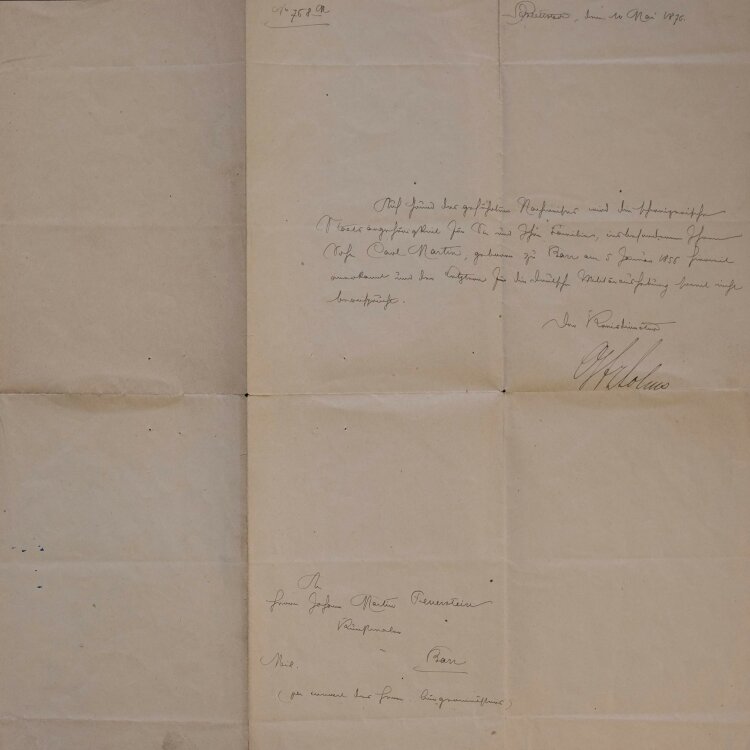 No 758 M
Schlettstadt, den 10 Mai 1876.
Auf Grund des geführten Nachweises wird die schweizerische
Staatsangehörigkeit für Sie und Ihre Familie, insbesondere Ihren
Sohn Carl Martin, geboren zu Barr am 5 Januar 1856 hiermit
anerkannt und der Letztere für die deutsche Militäraushebung somit nicht
beansprucht.
Der Kreisdirector
An
Herrn Johann Martin Feuerstein
Kunstmaler
Barr
(per couvert des Herrn Bürgermeisters)